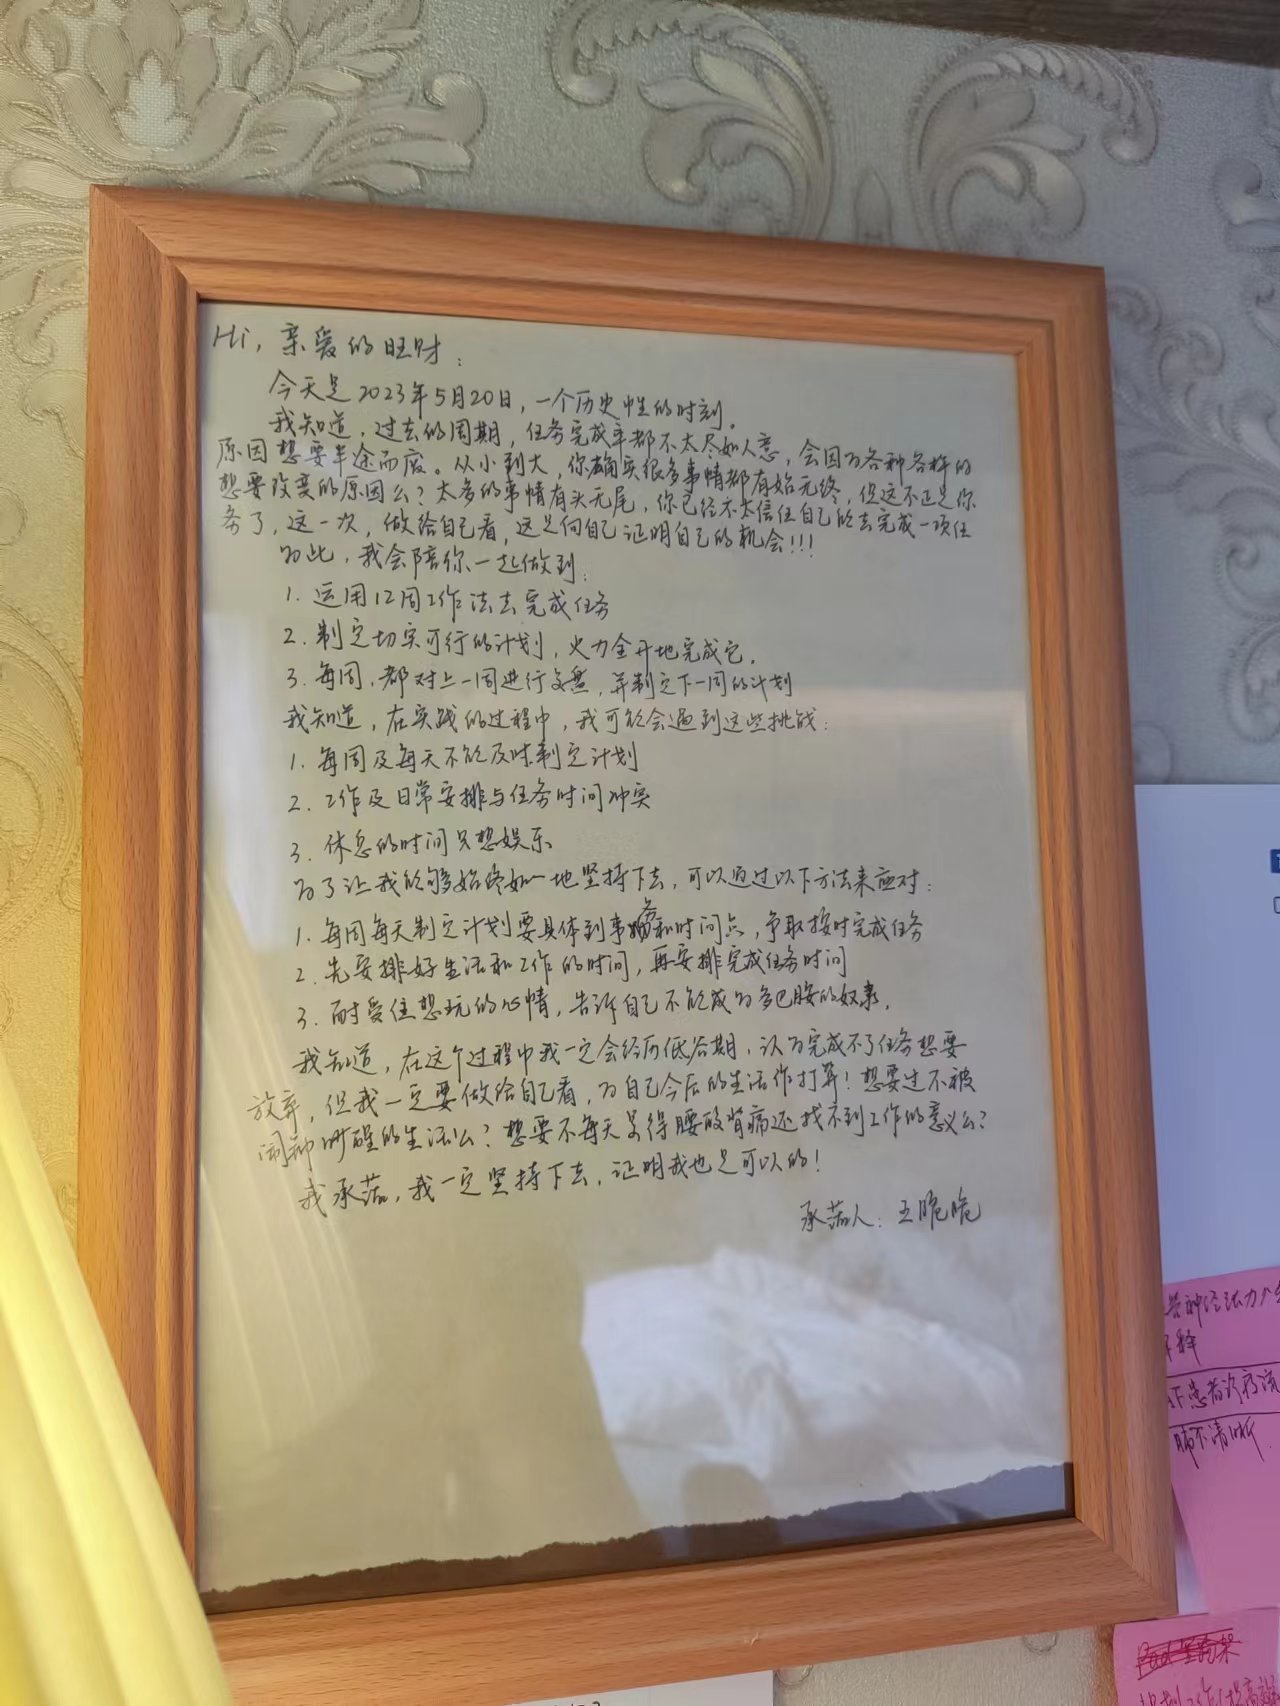 Hi，亲爱的旺财：
今天是2023年5月20日，一个历史性的时刻。
我知道，过去的周期，任务完成率都不太尽如人意，会因为各种各样的
原因想要半途而废。从小到大，你确实很多事情都有始无终，但这不正是你
想要改变的原因么？太多的事情有头无尾，你已经不太信任自己能去完成一项任
务了，这一次，做给自己看，这是向自己证明自己的机会!!!
为此，我会陪你一起做到：
1. 运用12周工作法去完成任务
2. 制定切实可行的计划，火力全开地完成它。
3. 每周，都对上一周进行复盘，并制定下一周的计划
我知道，在实践的过程中，我可能会遇到这些挑战：
1. 每周及每天不能及时制定计划
2. 工作及日常安排与任务时间冲突
3. 休息的时间只想娱乐
为了让我能够始终如一地坚持下去，可以通过以下方法来应对：
1. 每周每天制定计划要具体到事务和时间点，争取按时完成任务
2. 先安排好生活和工作的时间，再安排完成任务时间
3. 耐受住想玩的心情，告诉自己不能成为多巴胺的奴隶。
我知道，在这个过程中我一定会经历低谷期，认为完成不了任务想要
放弃，但我一定要做给自己看，为自己今后的生活作打算！想要过不被
闹钟吵醒的生活么？想要不每天累得腰酸背痛还找不到工作的意义么？
我承诺，我一定坚持下去，证明我也是可以的！
承诺人：王脆脆
患者诊疗流
肺不清晰